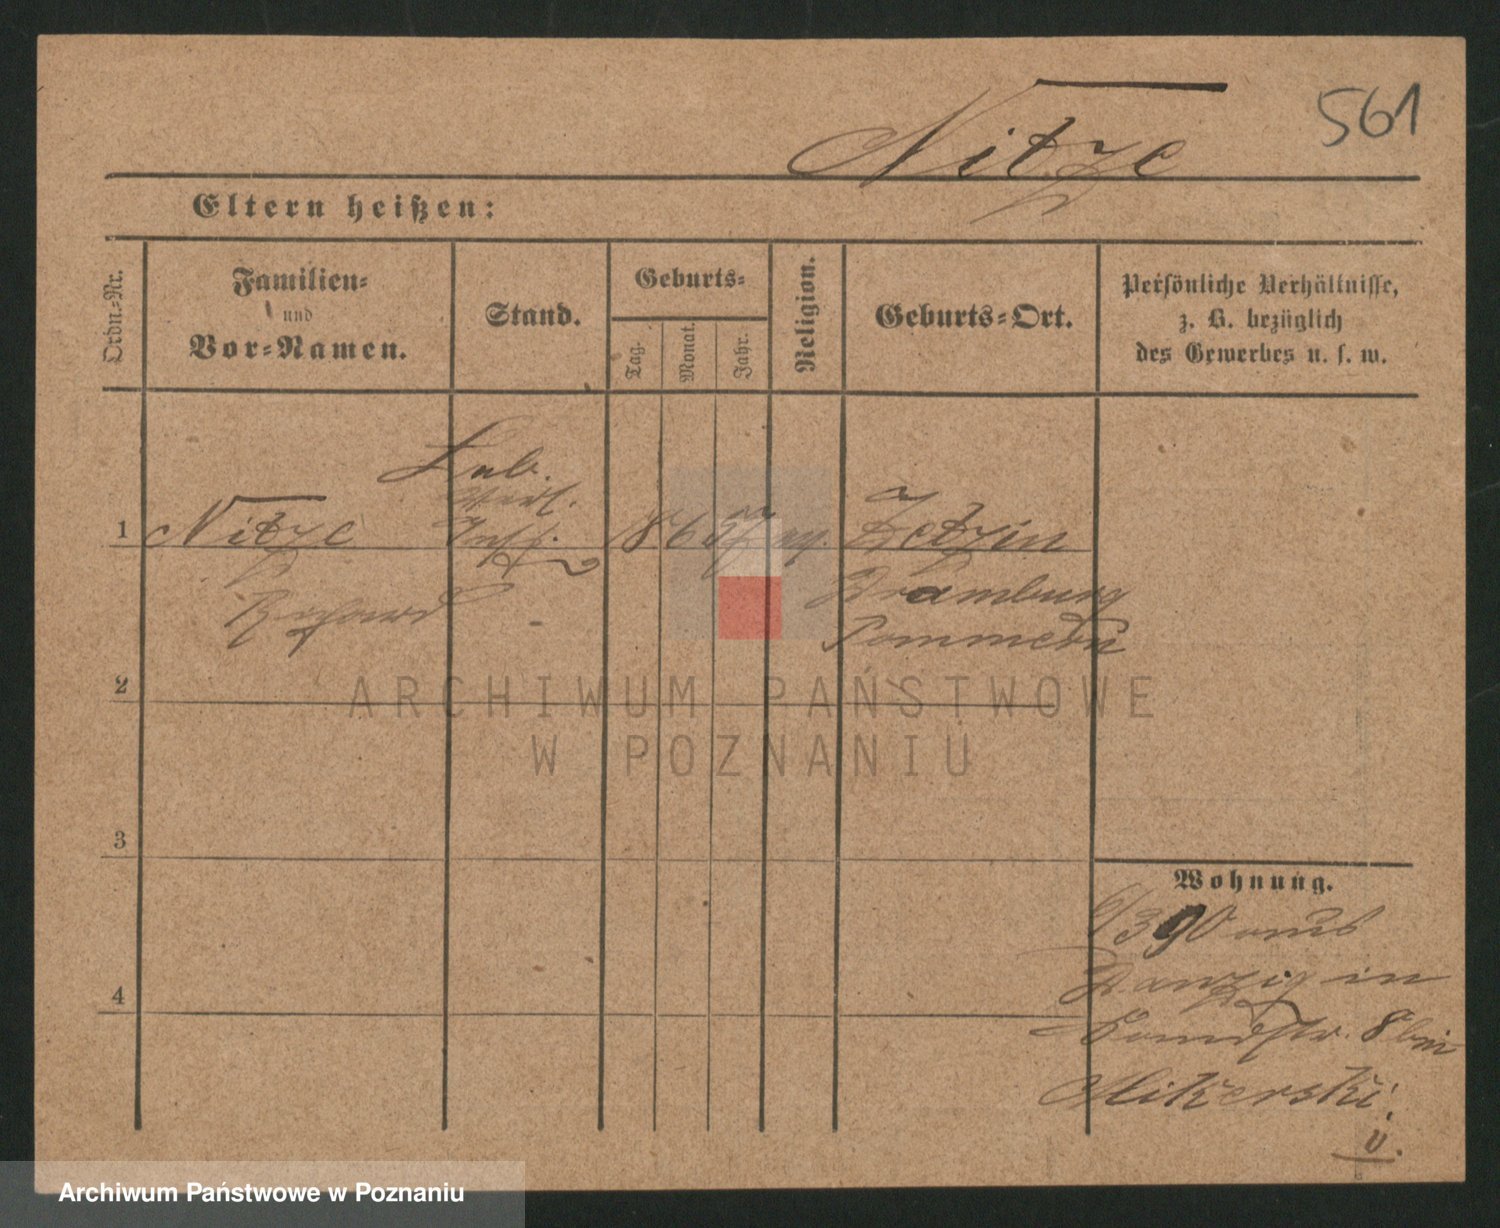 561
Nitze
Eltern heißen:
Ordn.-Nr.
Familien-
und
Vor-Namen.
Stand.
Geburts-
Tag.
Monat.
Jahr.
Religion.
Geburts-Ort.
Persönliche Verhältnisse,
z. B. bezüglich
des Gewerbes u. s. w.
1
Nitze
Richard
Vers.
Insp.
ev.
Zetzin
Dramburg
Pommern
2
3
4
Wohnung.
6/3 90 aus
Danzig in
8 bei
Mikerski
v.
ARCHIWUM PAŃSTWOWE
W POZNANIU
Archiwum Państwowe w Poznaniu